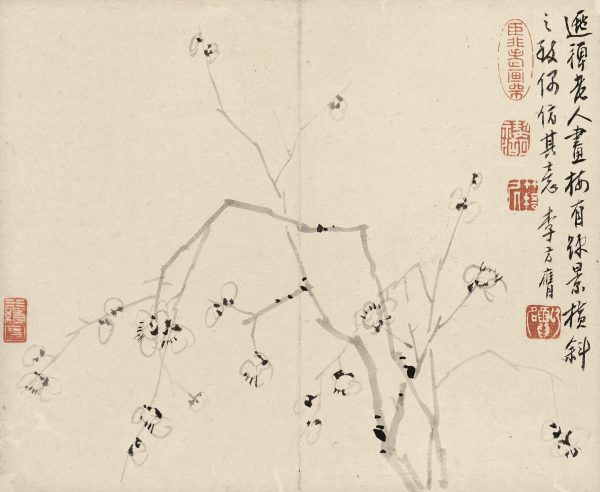 遯禪老人畫梅有疎景橫斜
之致偶仿其意 李方膺